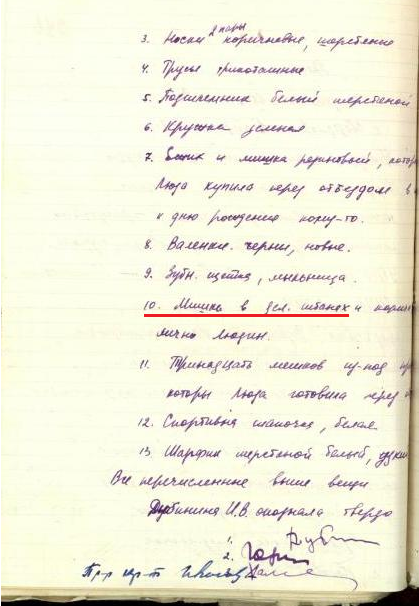 3. Носки 2 пары коричневые, шерстяные
4. Трусы трикотажные
5. Подшлемник белый шерстяной
6. Кружка зеленая
7. и мишка резиновый,
Люда купила перед отъездом в
к дню рождения кому-то.
8. Валенки. черные, новые.
9. Зубн. щетка, мыльница.
10. Мишка в зел. штанах и
лично Людин.
11. Тринадцать мешков из-под
которы Люда готовила перед
12. Спортивная шапочка, белая
13 Шарфик шерстяной белый,
Все перечисленные выше вещи
Дубинина И.В. опознала твердо
1. Дуб
2.
Пр-р кр-та Иванов